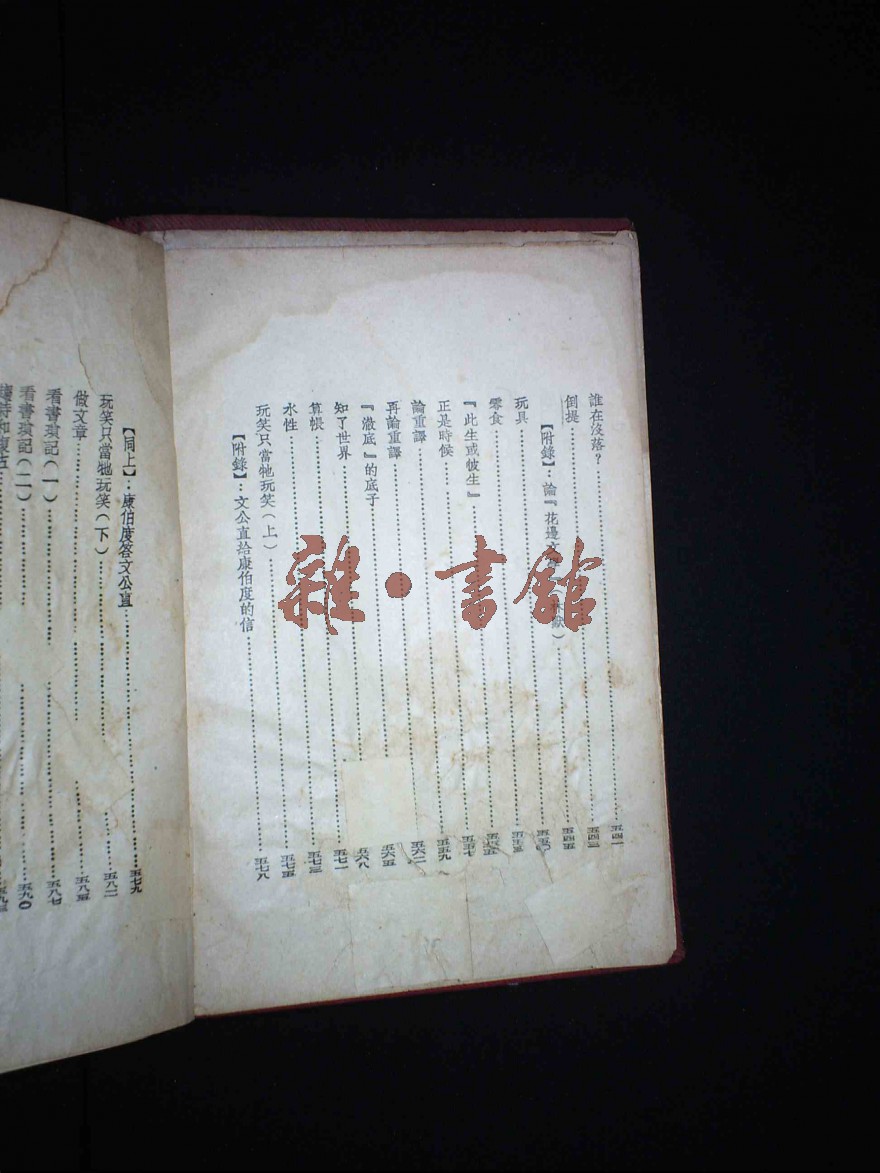 誰在沒落?……五四一
倒提……五四三
【附錄】:論『花邊文學』……五四五
玩具……五五〇
零食……五五三
『此生或彼生』……五五五
正是時候……五五七
論重譯……五五九
再論重譯……五六二
『澈底』的底子……五六五
知了世界……五六八
算帳……五七一
水性……五七三
玩笑只當牠玩笑(上)……五七五
【附錄】:文公直給康伯度的信……五七八
【同上】:康伯度答文公直……五七九
玩笑只當牠玩笑(下)……五八二
做文章……五八五
看書瑣記(一)……五八七
看書瑣記(二)……五九〇
雜·書館